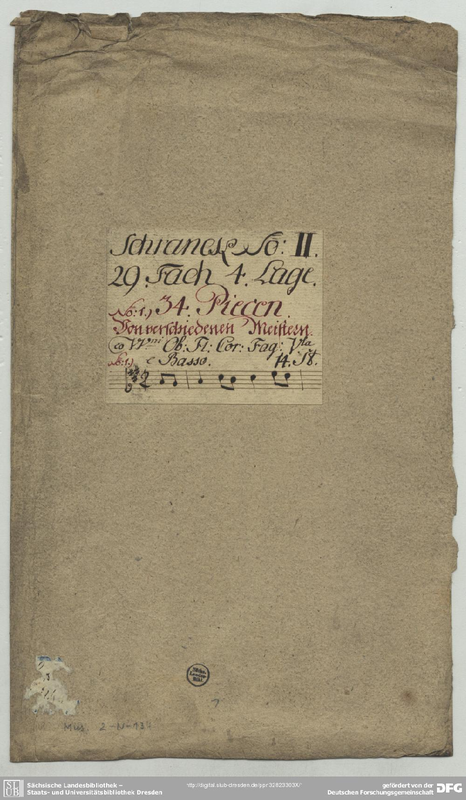 Schranck No: II.
29. Fach 4. Lage.
No: 1.) 34. Piecen.
Von verschiedenen Meistern.
co VVni Ob: Fl: Cor: Fag: Vla
No: 1.) e Basso. 14. St.
Mus. 2-N-13
Sächsische Landesbibliothek –
Staats- und Universitätsbibliothek Dresden
gefördert von der
Deutschen Forschungsgemeinschaft
DFG